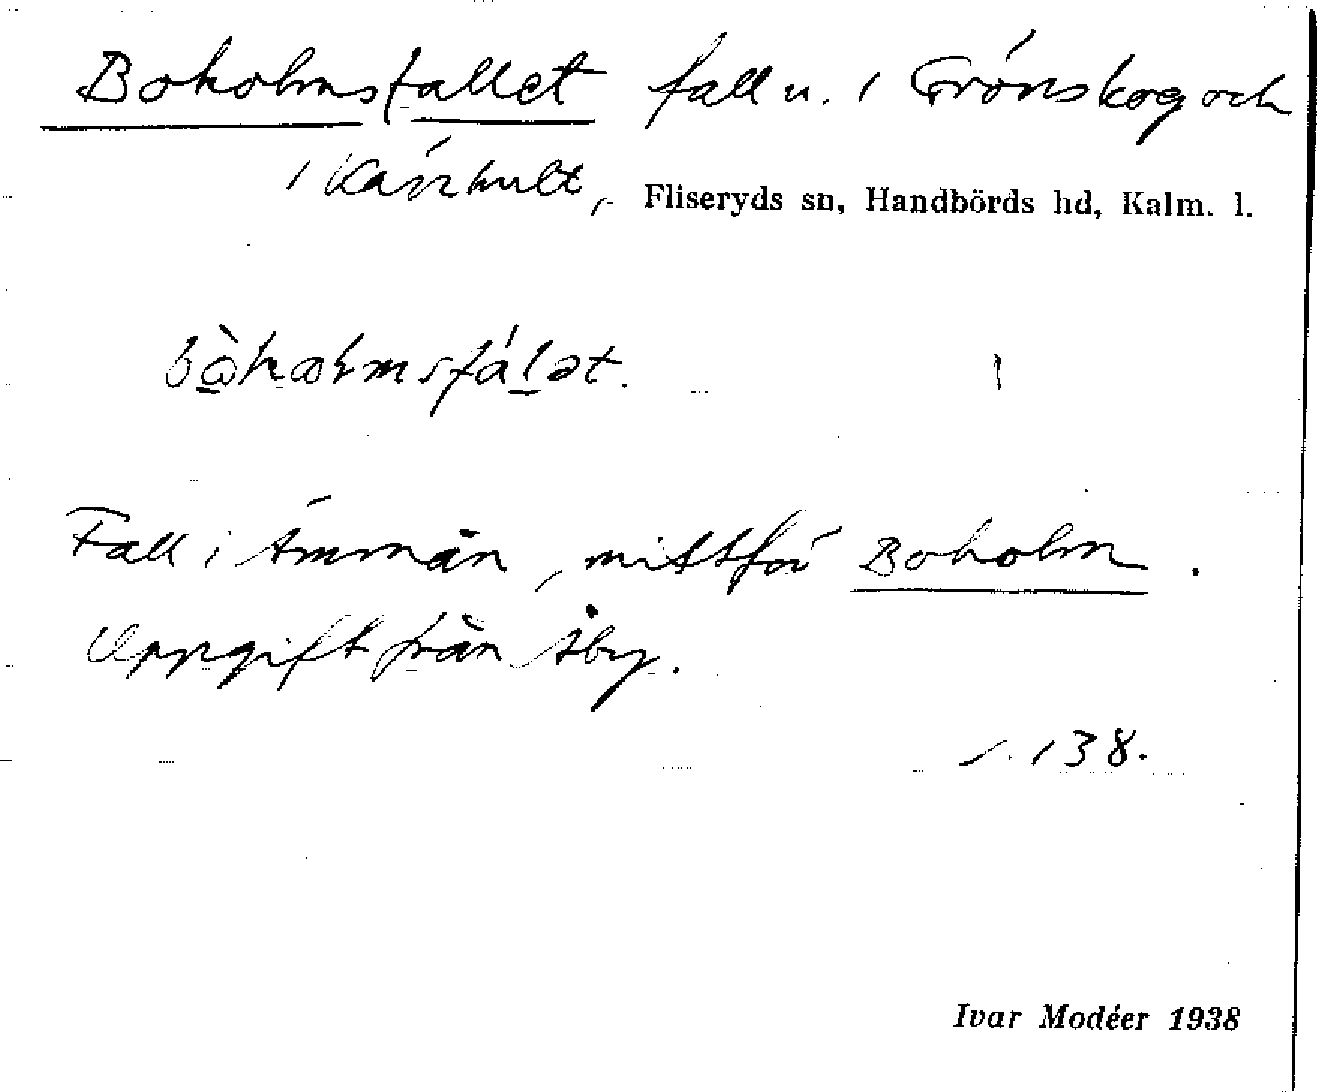 Boholmsfallet fall u. 1 Grönskog och
1 Kärrhult, Fliseryds sn, Handbörds hd, Kalm. l.
Fall i Ämmån, mittför Boholm.
Uppgift från Åby.
s. 138.
Ivar Modéer 1938